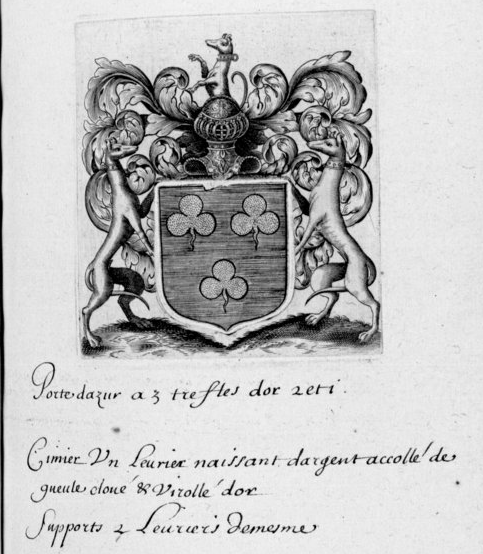 Porte dazur a 3 trefles dor 2 et i.
Cimier Vn Leurier naissant dargent accollé de
gueule cloué & Virollé dor
Supports 2 Leuriers demesme